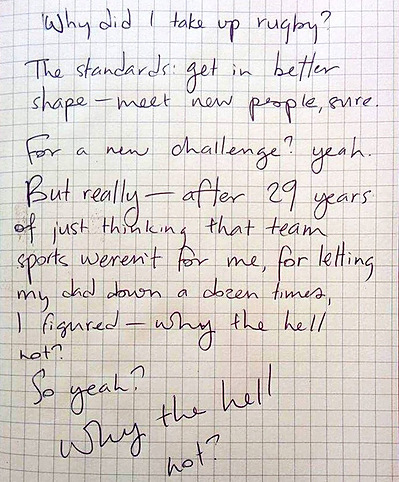 Why did I take up rugby?
The standards: get in better
shape – meet new people, sure.
For a new challenge? yeah.
But really – after 29 years
of just thinking that team
sports weren't for me, for letting
my dad down a dozen times,
I figured – why the hell
not?
So yeah?
Why the hell
not?